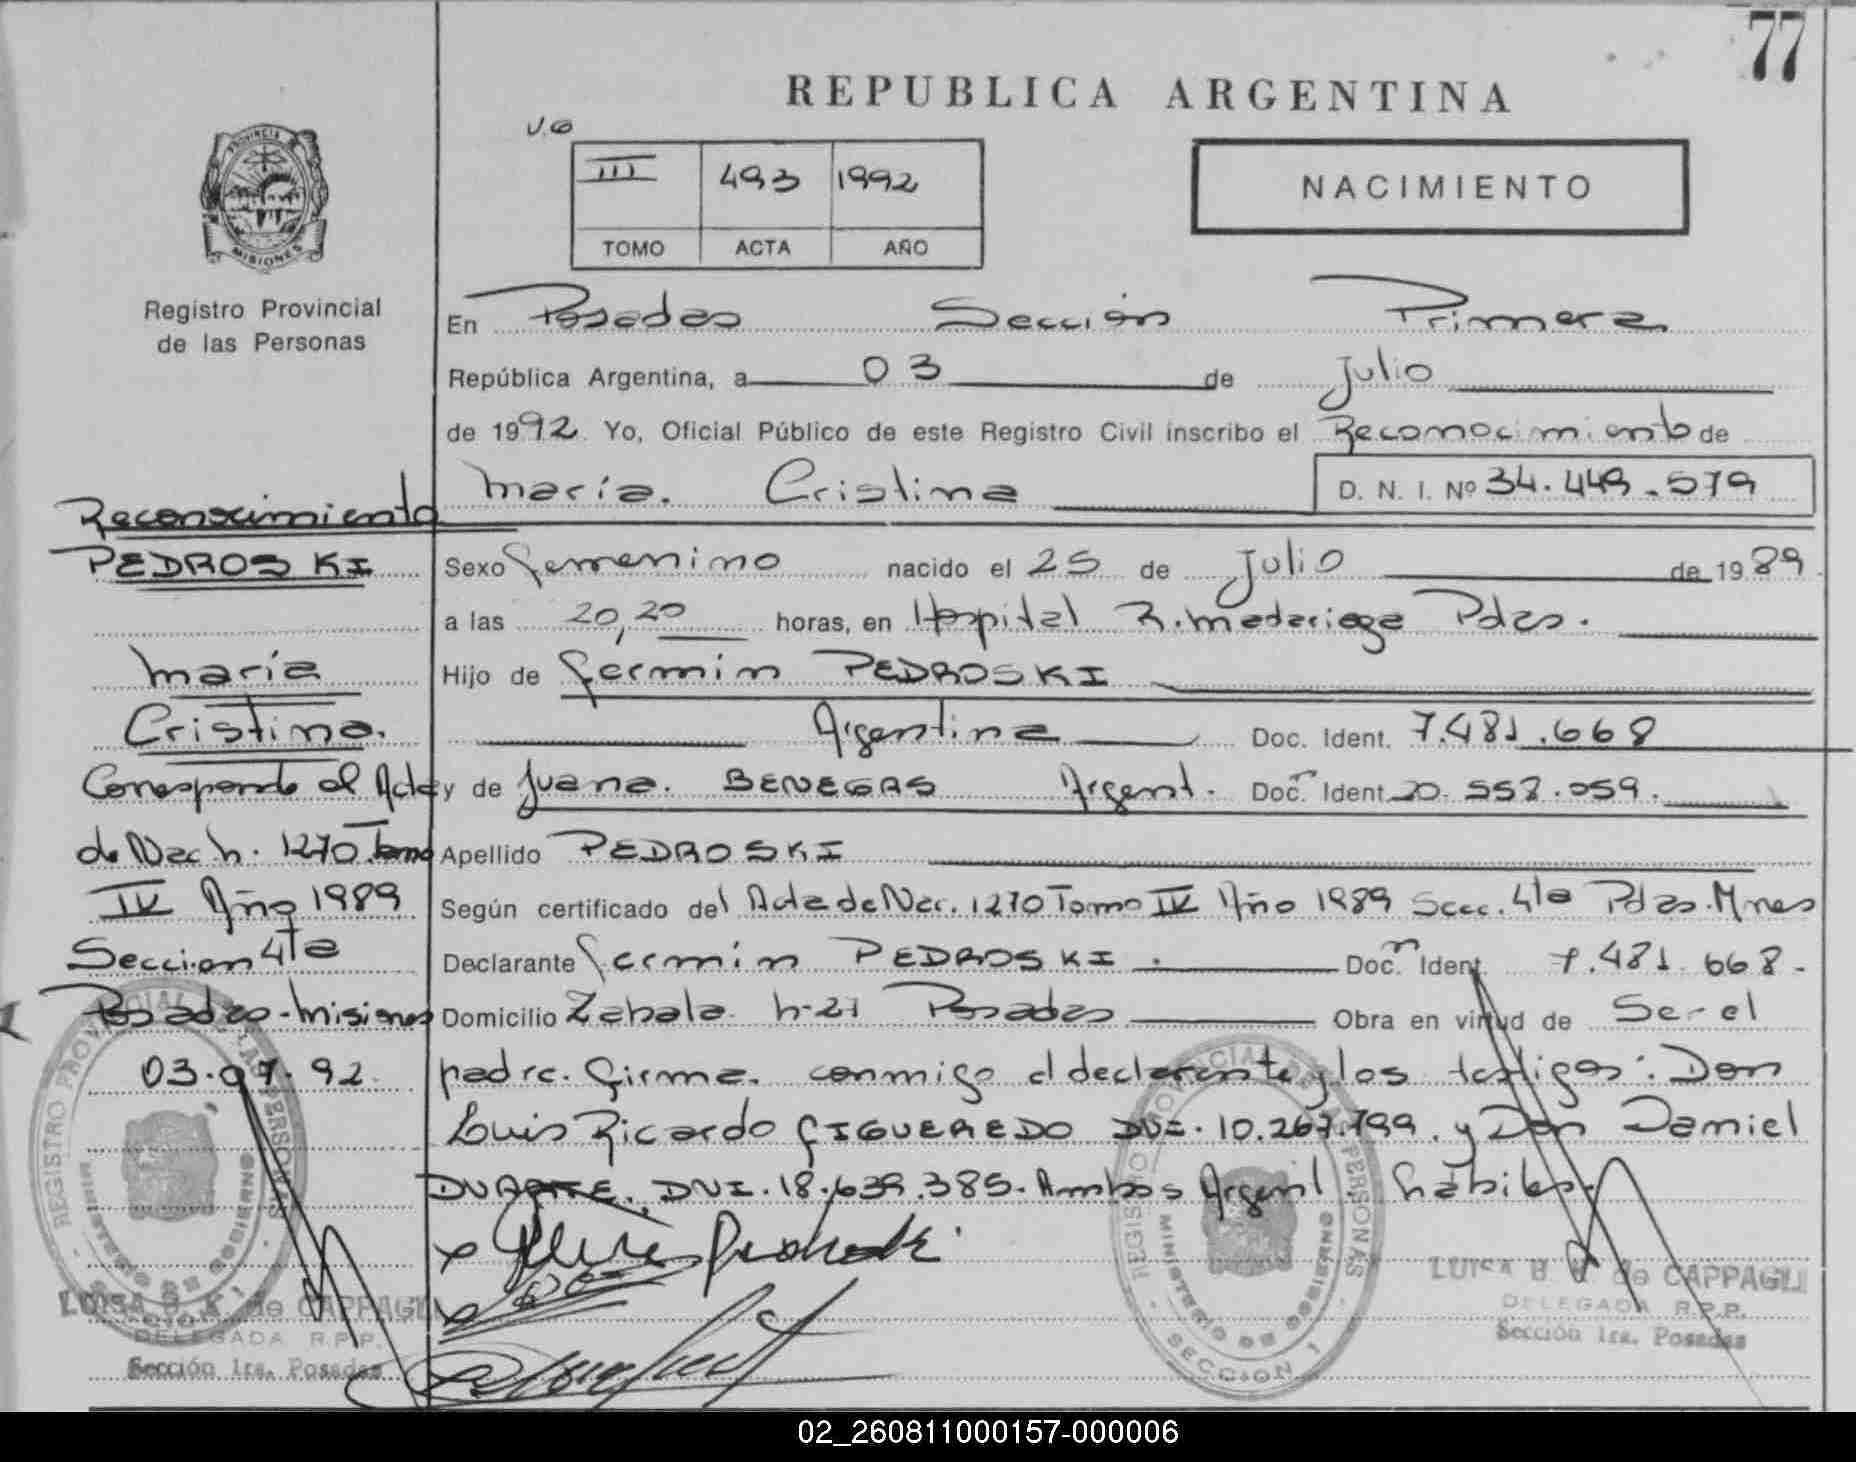 77
REPUBLICA ARGENTINA
III 493 1992
TOMO ACTA AÑO
NACIMIENTO
PROVINCIA
MISIONES
Registro Provincial
de las Personas
En Posadas Sección Primera
República Argentina, a 03 de Julio
de 1992. Yo, Oficial Público de este Registro Civil inscribo el Reconocimiento de
María. Cristina D. N. I. Nº 34.449.579
Reconocimiento
PEDROSKI
María
Cristina.
Corresponde al Acta
de Nac. h. 1270 Tomo
IV Año 1989
Seccion 4ta
Posadas-Misiones
03.07.92
Sexo Femenino nacido el 25 de Julio de 1989
a las 20,20 horas, en Hospital R. Madariaga Pdas.
Hijo de Fermin PEDROSKI
Argentina Doc. Ident. 7.481.668
y de Juana. BENEGAS Argent. Doc. Ident 20.558.059.
Apellido PEDROSKI
Según certificado del Acta de Nac. 1270 Tomo IV Año 1989 Secc. 4ta Pdas. Mnes
Declarante Fermin PEDROSKI. Doc. Ident. 7.481.668.
Domicilio Zabala h-21 Posadas Obra en virtud de Ser el
padre. Firma. conmigo el declarante y los testigos: Don
Luis Ricardo FIGUEREDO DNI. 10.267.799. y Don Daniel
DUARTE. DNI. 18.639.385. Ambos Argent. hábiles.
REGISTRO PROVINCIAL DE LAS PERSONAS
MINISTERIO DE GOBIERNO
SECCION 1
LUISA B. de CAPPAGLI
DELEGADA R.P.P.
Sección 1ra. Posadas
REGISTRO PROVINCIAL DE LAS PERSONAS
MINISTERIO DE GOBIERNO
SECCION 1
LUISA B. de CAPPAGLI
DELEGADA R.P.P.
Sección 1ra. Posadas
02_260811000157-000006